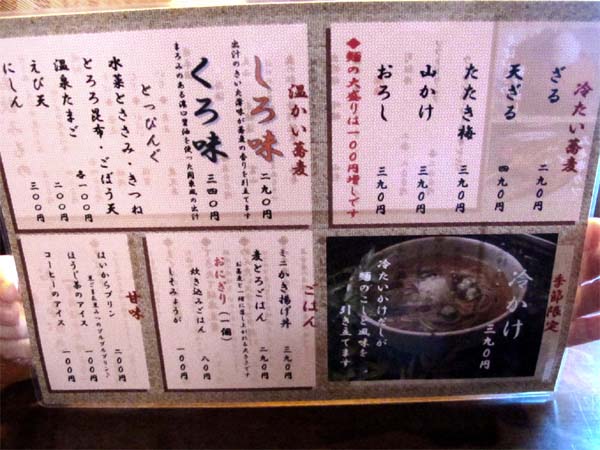 冷たい蕎麦
ざる 二九〇円
天ざる 四九〇円
たたき梅 三九〇円
山かけ 三九〇円
おろし 三九〇円
◆麺の大盛りは一〇〇円増しです
温かい蕎麦
しろ味 二九〇円
出汁のきいた薄味が蕎麦の香りを引立てます
くろ味 三四〇円
まろみのある濃口醤油を使った関東風の出汁
とっぴんぐ
水菜とささみ・きつね
とろろ昆布・ごぼう天 各一〇〇円
温泉たまご 二〇〇円
えび天 三〇〇円
にしん
季節限定
冷かけ 三九〇円
冷たいかけだしが
麺のこしと風味を
引き立てます
ごはん
ミニかき揚げ丼 三九〇円
麦とろごはん 二九〇円
お蕎麦と一緒に召し上がれる大きさです
おにぎり(一個)
炊き込みごはん 八〇円
しそみょうが 一〇〇円
甘味
はいからプリン 二〇〇円
ほうじ茶のアイス 一〇〇円
コーヒーのアイス 一〇〇円